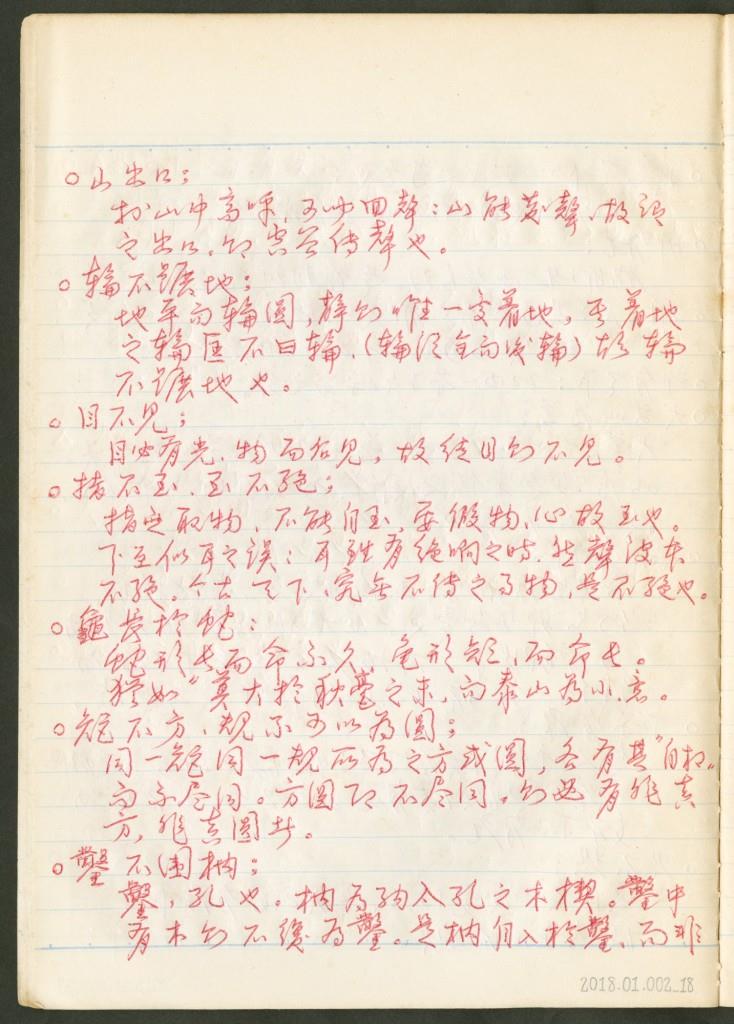 ○山出口；
於山中高呼，可必回聲；山能發聲，故謂
之出口，如空谷傳聲也。
○輪不蹍地；
地平而輪圓，靜則唯一處著地，其著地
之輪匡不曰輪，（輪須全而後輪）故輪
不蹍地也。
○目不見；
目必有光、物而后見，故徒目則不見。
○指不至，至不絕；
指定取物，不能自至，要假物，心故至也。
下至似耳之誤；耳雖有絕响之時，然聲波本
不絕。今古天下，究無不傳之事物，是不絕也。
○龜長於蛇；
蛇形長而命不久，龟形短，而命长。
猶如"莫大於秋毫之末，而泰山為小"意。
○矩不方，規不可以為圓；
同一矩同一規所為之方或圓，各有其"自相"
而不盡同。方圓即不盡同，則必有非真
方，非真圓者。
○鑿不围枘；
鑿，孔也。枘為納入孔之木楔。鑿中
有木則不復為鑿。是枘自入於鑿，而非
2018.01.002_18